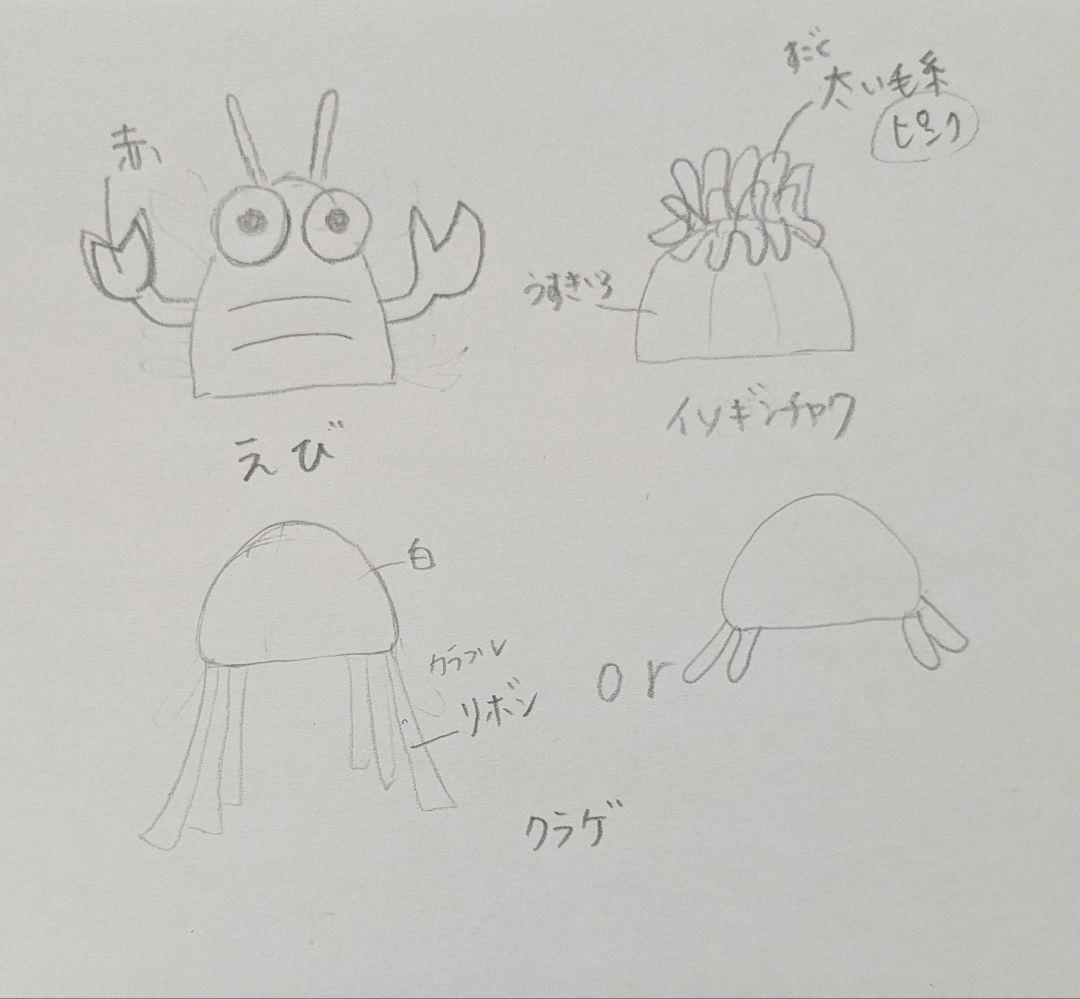 赤
すごく
太い毛糸
ピンク
うすきいろ
えび
イソギンチャク
白
リボン
or
クラゲ